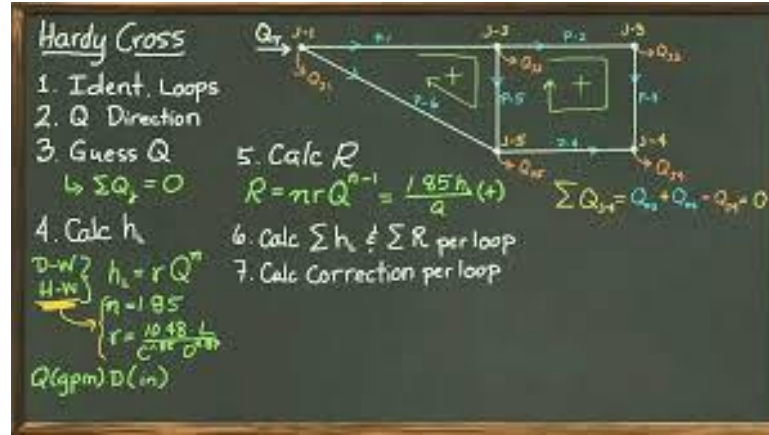 Hardy Cross
1. Ident. Loops
2. Q Direction
3. Guess Q
↳ ΣQ_J = 0
4. Calc h_L
D-W
H-W
h_L = rQ^n
n = 1.85
r = 10.48 L / C^1.85 D^4.87
Q(gpm) D(in)
5. Calc R
R = nrQ^n-1 = 1.85h_L / Q (+)
6. Calc Σh_L & ΣR per loop
7. Calc Correction per loop
Q_T
J-1
P-1
P-2
J-3
Q_J1
+
+
P-5
P-6
J-5
J-4
ΣQ_J-4 =
= 0